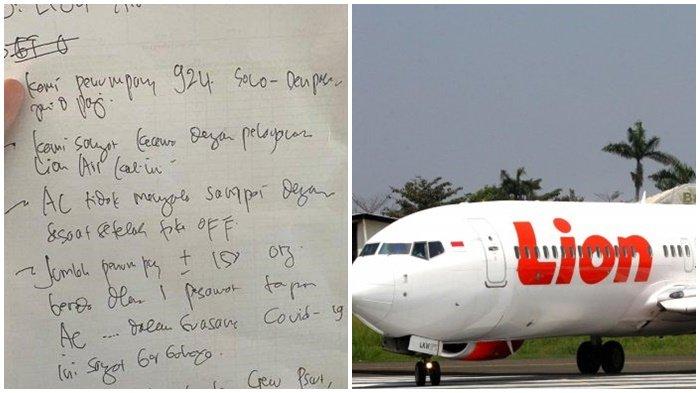 Kami penumpang 924 Solo-Denpasar
jam 8 pagi.
kami sangat kecewa dengan pelayanan
Lion Air kali ini
AC tidak menyala sampai dengan
sesaat setelah take OFF.
Jumlah penumpang ± 150 org
berada dlam 1 pesawat tanpa
AC .... dalam suasana Covid-19
ini sangat berbahaya.
Crew Psat,
Lion